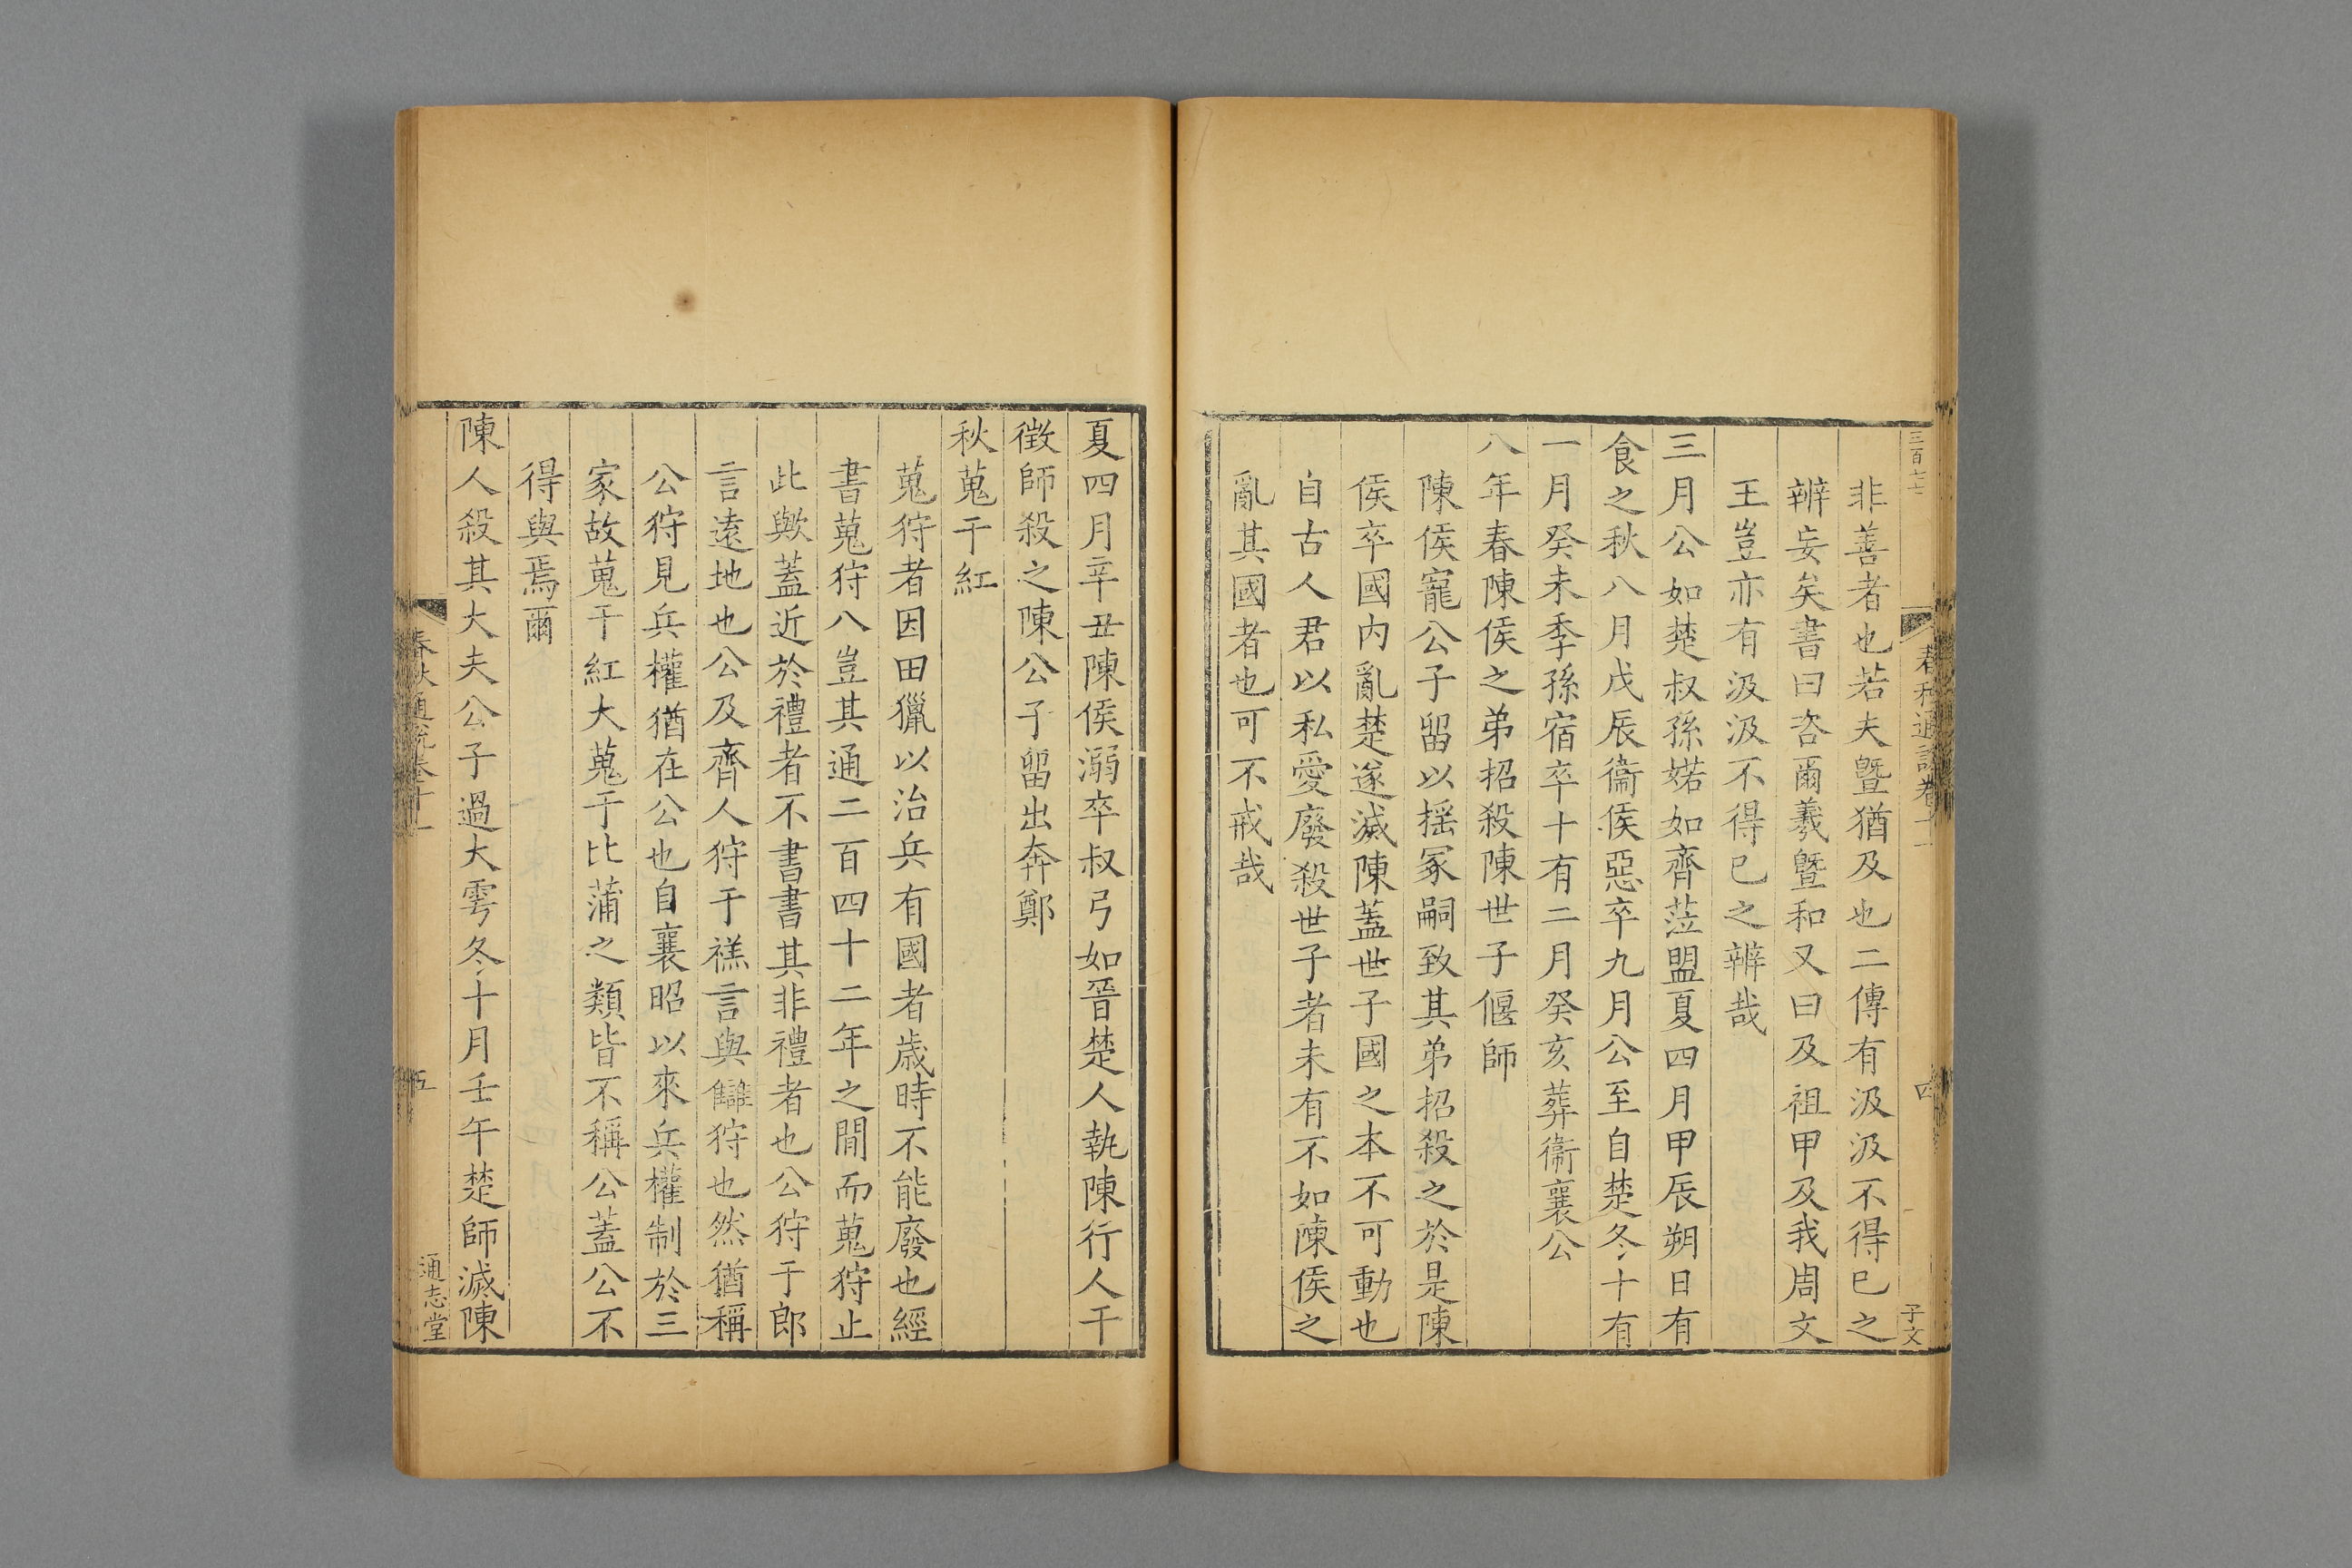 三百七十七
春秋通說卷十一
四
子文
非善者也若夫曁猶及也二傳有汲汲不得已之
辨妄矣書曰咨爾羲曁和又曰及祖甲及我周文
王豈亦有汲汲不得已之辨哉
三月公如楚叔孫婼如齊莅盟夏四月甲辰朔日有
食之秋八月戊辰衞侯惡卒九月公至自楚冬十有
一月癸未季孫宿卒十有二月癸亥葬衞襄公
八年春陳侯之弟招殺陳世子偃師
陳侯寵公子留以揺冢嗣致其弟招殺之於是陳
侯卒國内亂楚遂滅陳蓋世子國之本不可動也
自古人君以私愛廢殺世子者未有不如陳侯之
亂其國者也可不戒哉
夏四月辛丑陳侯溺卒叔弓如晉楚人執陳行人干
徵師殺之陳公子留出奔鄭
秋蒐于紅
蒐狩者因田獵以治兵有國者歲時不能廢也經
書蒐狩八豈其通二百四十二年之間而蒐狩止
此歟蓋近於禮者不書書其非禮者也公狩于郎
言遠地也公及齊人狩于禚言與讎狩也然猶稱
公狩見兵權猶在公也自襄昭以來兵權制於三
家故蒐于紅大蒐于比蒲之類皆不稱公蓋公不
得與焉爾
陳人殺其大夫公子過大雩冬十月壬午楚師滅陳
春秋通說卷十一
五
通志堂